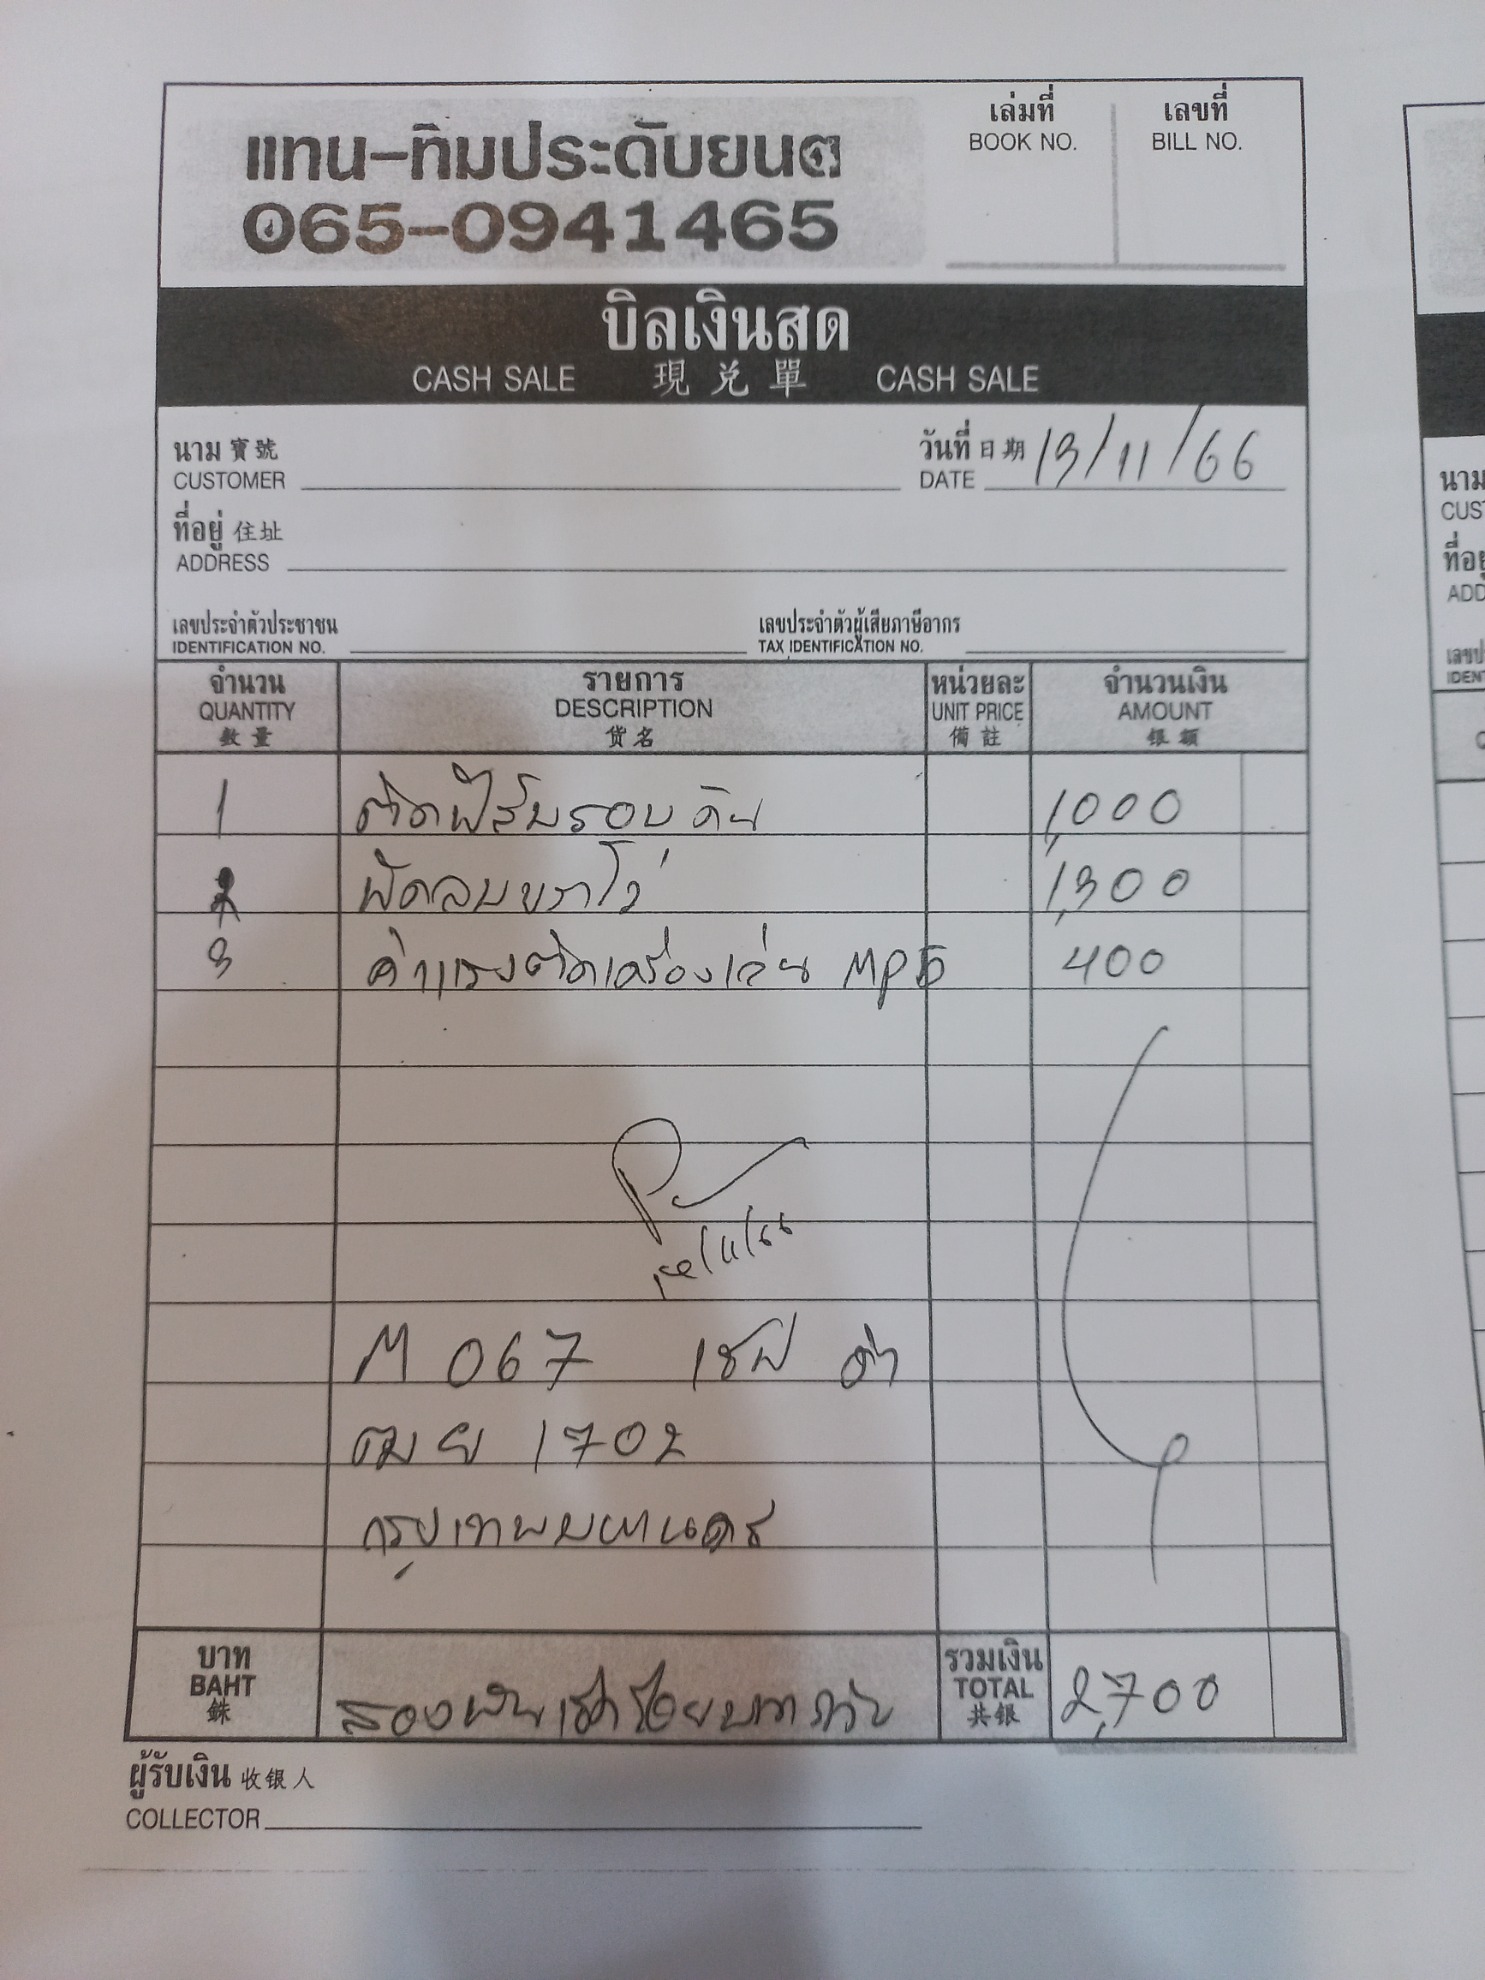 แทน-ทิมประดับยนต์
065-0941465
เล่มที่
BOOK NO.
เลขที่
BILL NO.
บิลเงินสด
CASH SALE 現兑單 CASH SALE
นาม 寶號
CUSTOMER
วันที่ 日期 13/11/66
DATE
ที่อยู่ 住址
ADDRESS
เลขประจำตัวประชาชน
IDENTIFICATION NO.
เลขประจำตัวผู้เสียภาษีอากร
TAX IDENTIFICATION NO.
จำนวน
QUANTITY
数量
รายการ
DESCRIPTION
货名
หน่วยละ
UNIT PRICE
備註
จำนวนเงิน
AMOUNT
银额
1 ติดฟิล์มรอบคัน 1,000
2 พัดลมบราโว่ 1,300
3 ค่าแรงติดเครื่องเล่น MP5 400
M 067 เชฟ ดำ
ฒย 1702
กรุงเทพมหานคร
บาท
BAHT
銖
สองพันเจ็ดร้อยบาทถ้วน
รวมเงิน
TOTAL
共银
2,700
ผู้รับเงิน 收银人
COLLECTOR
นาม
CUS
ADD
IDEN